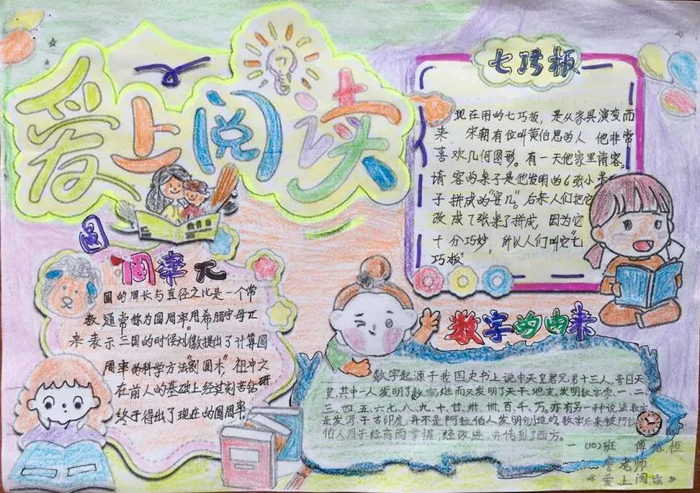 爱上阅读
七巧板
现在用的七巧板，是从家具演变而
来 宋朝有位叫黄伯思的人 他非常
喜欢几何图形。有一天他家里请客。
请客的桌子是他发明的6张小
子拼成的"宴几"。后来人们把它
改成了7张桌子拼成，因为它
十分巧妙，所以人们叫它"七
巧板"
圆周率π
圆的周长与直径之比是一个常
数 通常称为圆周率用希腊字母π
来表示 三国的时候刘徽提出了计算圆
周率的科学方法"割圆术" 祖冲之
在前人的基础上经过刻苦钻研
终于得出了现在的圆周率
数字的由来
数字起源于我国史书上说中天皇君兄弟十三人，号曰天
皇，其中一人发明了数字，继而又发明了天干、地支，发明数字零、一、二
三、四、五、六、七、八、九、十、廿、卅、卌、百、千、万，亦有另一种说法数字
来发源于古印度，并不是阿拉伯人发明创造的，数字后来被阿拉
伯人用于经商而掌握，经改进，并传到了西方。
(10)班 傅
老师
《爱上阅读》